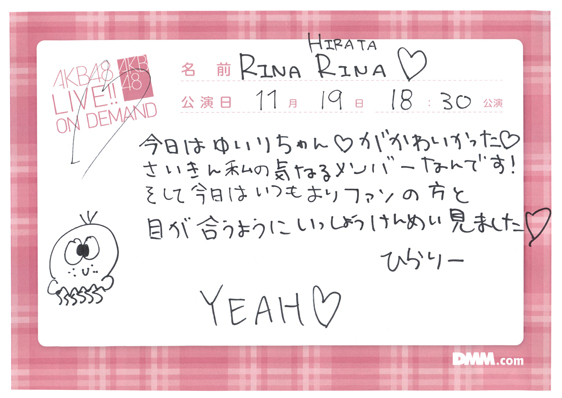 AKB48
LIVE!!
ON DEMAND
AKB
48
HIRATA
名 前 RINA RINA ♡
公演日 11月 19日 18:30公演
今日はゆいりちゃん♡がかわいかった♡
さいきん私の気なるメンバーなんです!
そして今日はいつもよりファンの方と
目が合うようにいっしょうけんめい見ました♡
ひらりー
YEAH♡
DMM.com